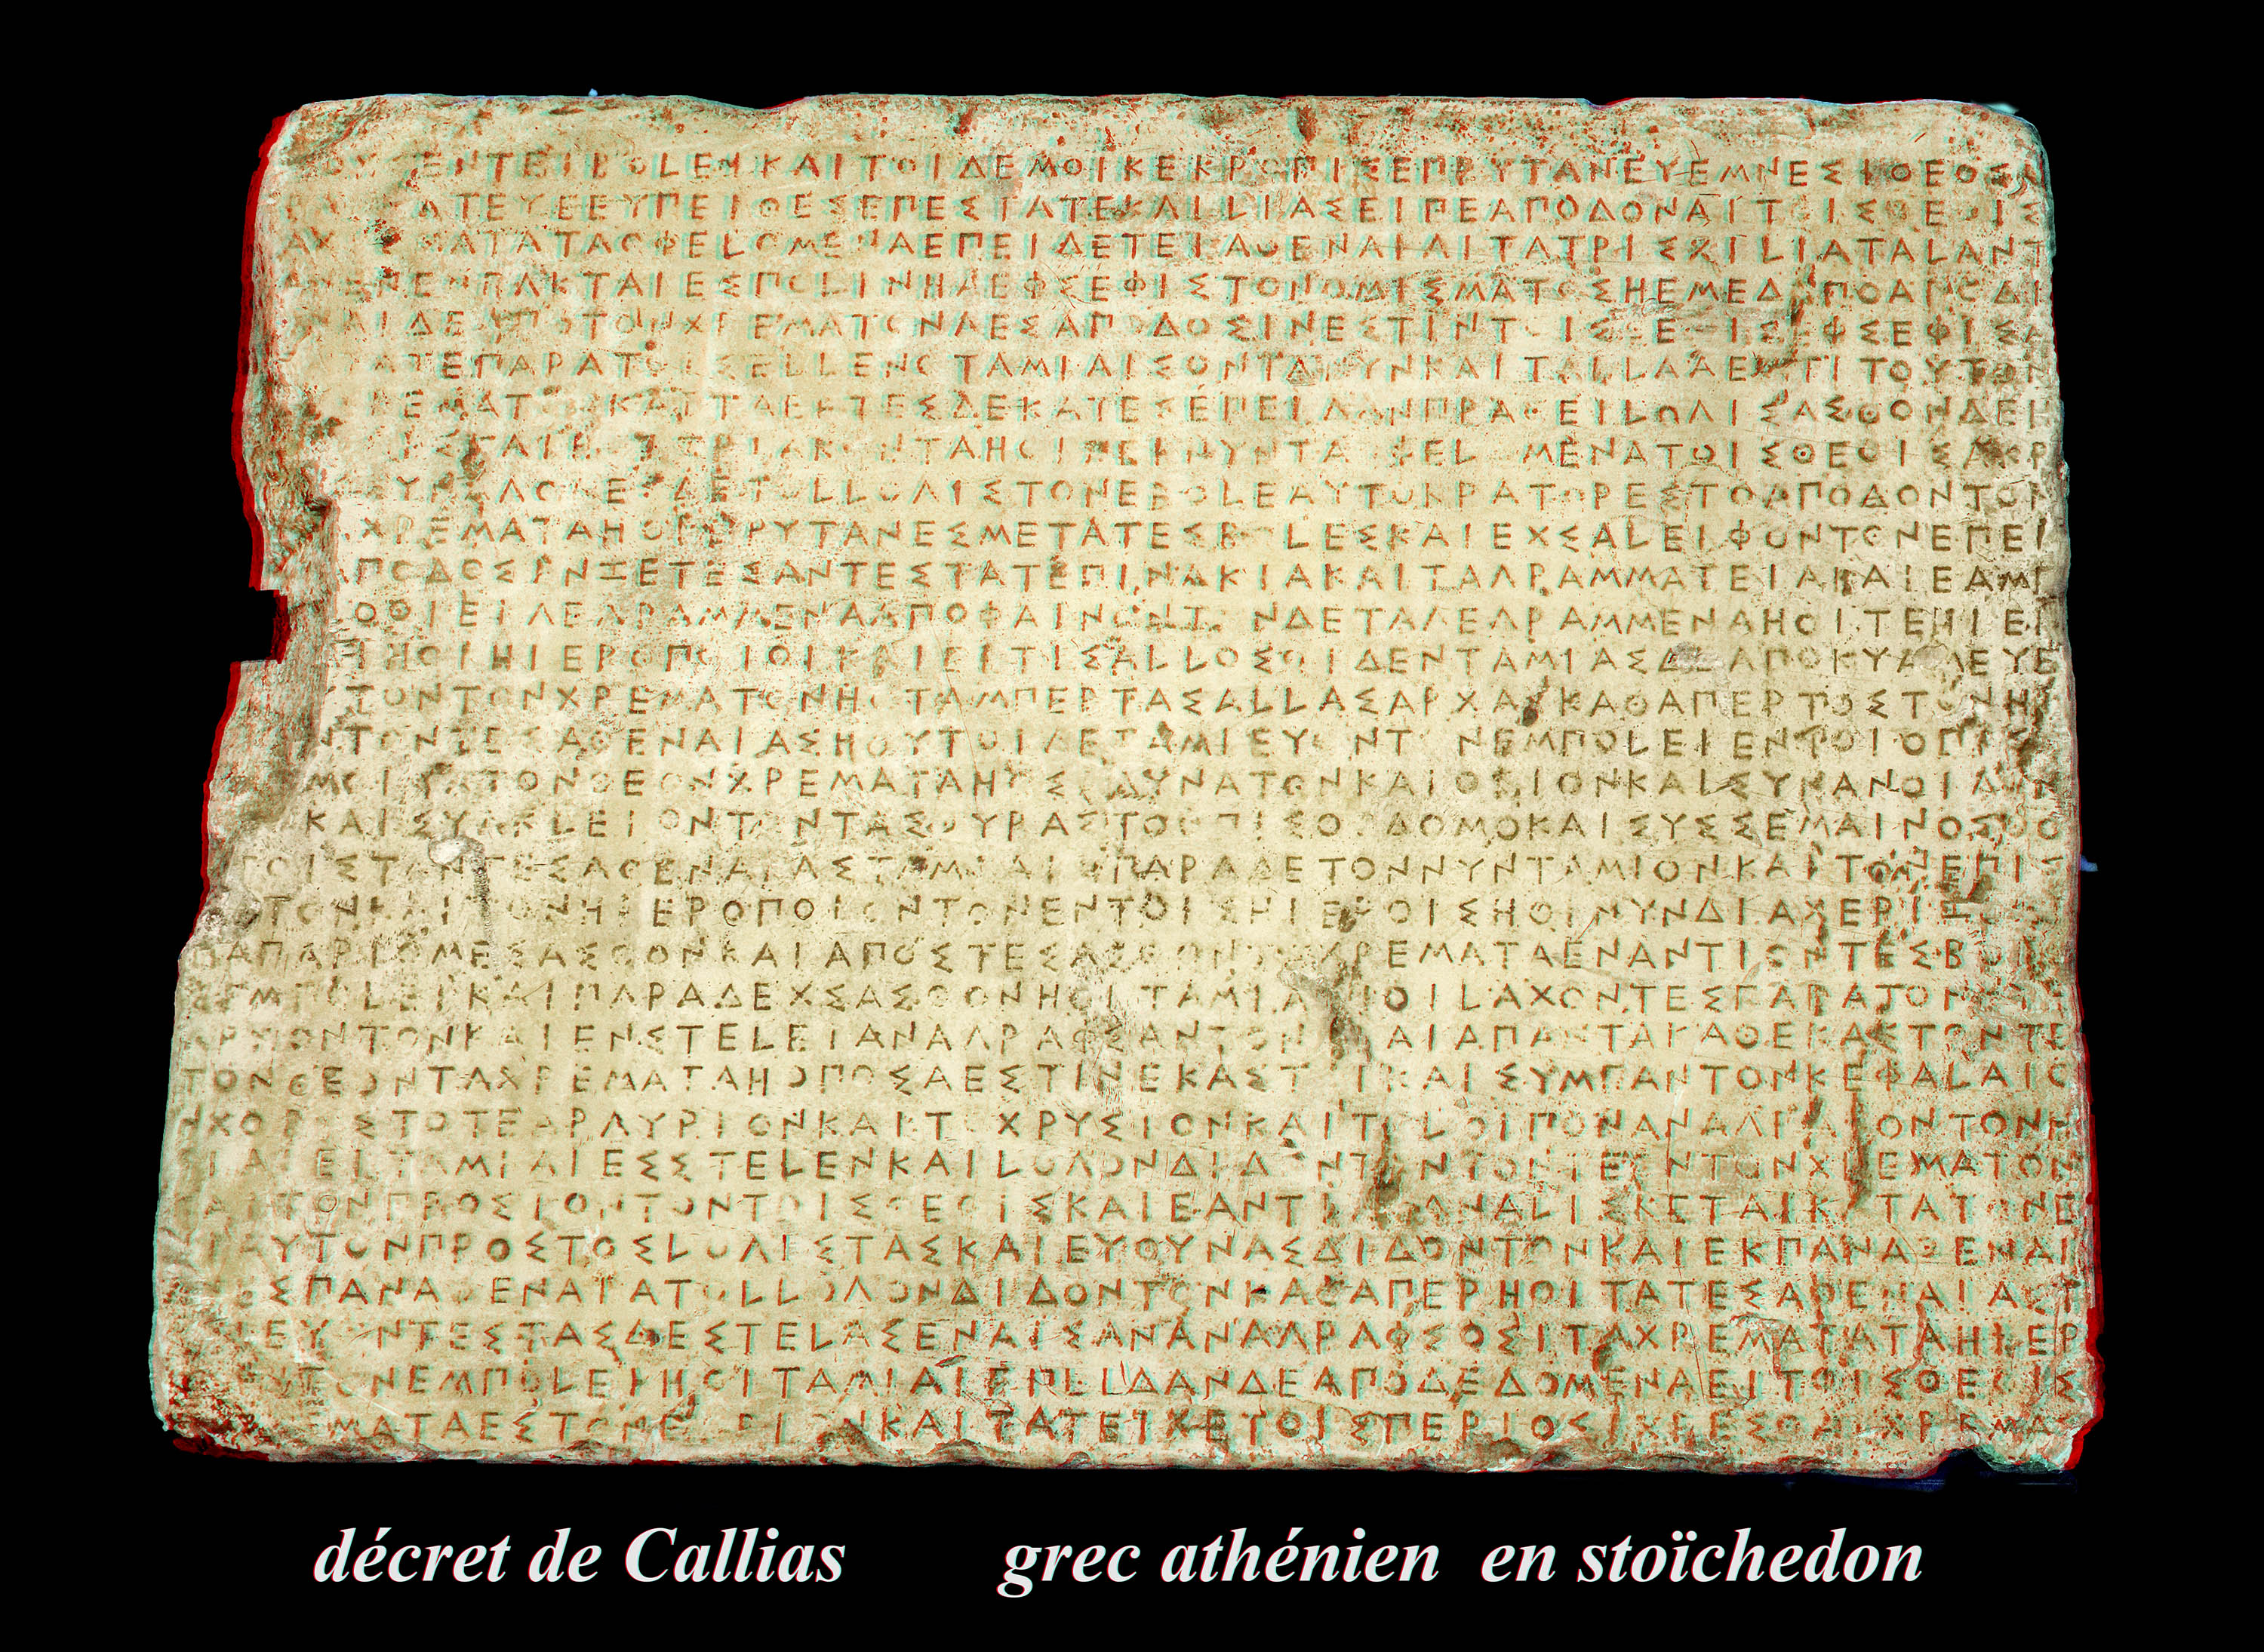 ΟΧΣΕΝΤΕΙΒΟΛΕΙΚΑΙΤΟΙΔΕΜΟΙΚΕΚΡΟΠΙΣΕΠΡΥΤΑΝΕΥΕΜΝΕΣΙΘΕΟΣΕ
ΡΑΜΜΑΤΕΥΕΕΥΠΕΙΘΕΣΕΠΕΣΤΑΤΕΚΑΛΛΙΑΣΕΙΠΕΑΠΟΔΟΝΑΙΤΟΙΣΘΕΟΙΣ
ΑΧΡΕΜΑΤΑΤΑΟΦΕΛΟΜΕΝΑΕΠΕΙΔΕΤΕΙΑΘΕΝΑΙΑΙΤΑΤΡΙΣΧΙΛΙΑΤΑΛΑΝΤ
ΑΝΕΝΕΝΕΓΚΤΑΙΕΣΠΟΛΙΝΗΑΕΦΣΕΦΙΣΤΟΝΟΜΙΣΜΑΤΟΣΗΕΜΕΔΑΠΟΑΠΟΔΙ
ΟΝΑΙΔΕΑΠΟΤΟΝΧΡΕΜΑΤΟΝΗΑΕΣΑΠΟΔΟΣΙΝΕΣΤΙΝΤΟΙΣΘΕΟΙΣΕΦΣΕΦΙΣ
ΝΑΤΑΤΕΠΑΡΑΤΟΙΣΕΛΛΕΝΟΤΑΜΙΑΙΣΟΝΤΑΝΥΝΚΑΙΤΑΛΛΑΑΕΣΤΙΤΟΥΤΟΝ
ΧΡΕΜΑΤΟΝΚΑΙΤΑΕΚΤΕΣΔΕΚΑΤΕΣΕΠΕΙΔΑΝΠΡΑΘΕΙΛΟΓΙΣΑΣΘΟΝΔΕΗ
ΓΙΣΤΑΙΗΟΙΤΡΙΑΚΟΝΤΑΗΟΙΠΕΡΝΥΝΤΑΟΦΕΛΟΜΕΝΑΤΟΙΣΘΕΟΙΣΑΚΡ
ΣΥΝΑΓΟΓΕΣΔΕΤΟΛΛΟΓΙΣΤΟΝΕΒΟΛΕΑΥΤΟΚΡΑΤΟΡΕΣΤΟΑΠΟΔΟΝΤΟΝ
ΑΧΡΕΜΑΤΑΗΟΙΠΡΥΤΑΝΕΣΜΕΤΑΤΕΣΒΟΛΕΣΚΑΙΕΧΣΑΛΕΙΦΟΝΤΟΝΕΠΕΙ
ΑΠΟΔΟΣΙΝΖΕΤΕΣΑΝΤΕΣΤΑΤΕΠΙΝΑΚΙΑΚΑΙΤΑΓΡΑΜΜΑΤΕΙΑΚΑΙΕΑΜΠ
ΟΘΙΕΙΓΕΓΡΑΜΜΕΝΑΑΠΟΦΑΙΝΟΝΤΟΝΔΕΤΑΓΕΓΡΑΜΜΕΝΑΗΟΙΤΕΗΙΕΡ
ΑΙΗΟΙΗΙΕΡΟΠΟΙΟΙΚΑΙΕΙΤΙΣΑΛΛΟΣΟΙΔΕΝΤΑΜΙΑΣΔΕΑΠΟΚΥΑΜΕΥΕ
ΥΤΟΝΤΟΝΧΡΕΜΑΤΟΝΗΟΤΑΜΠΕΡΤΑΣΑΛΛΑΣΑΡΧΑΣΚΑΘΑΠΕΡΤΟΣΤΟΝΗΙ
ΝΤΟΝΤΕΣΑΘΕΝΑΙΑΣΗΟΥΤΟΙΔΕΤΑΜΙΕΥΟΝΤΟΝΕΜΠΟΛΕΙΕΝΤΟΙΟΠΙΣ
ΜΟΙΤΑΤΟΝΘΕΟΝΧΡΕΜΑΤΑΗΟΣΑΔΥΝΑΤΟΝΚΑΙΟΣΙΟΝΚΑΙΣΥΝΑΝΟΙΓΟΝ
ΚΑΙΣΥΓΚΛΕΙΟΝΤΟΝΤΑΣΘΥΡΑΣΤΟΟΠΙΣΘΟΔΟΜΟΚΑΙΣΥΣΣΕΜΑΙΝΟΣΘΟ
ΤΟΙΣΤΟΝΤΕΣΑΘΕΝΑΙΑΣΤΑΜΙΑΙΣΠΑΡΑΔΕΤΟΝΝΥΝΤΑΜΙΟΝΚΑΙΤΟΝΕΠΙΣ
ΤΟΝΚΑΙΤΟΝΗΙΕΡΟΠΟΙΟΝΤΟΝΕΝΤΟΙΣΗΙΕΡΟΙΣΗΟΙΝΥΝΔΙΑΧΕΡΙΖΟ
ΑΠΑΡΙΘΜΕΣΑΣΘΟΝΚΑΙΑΠΟΣΤΕΣΑΣΘΟΝΤΑΧΡΕΜΑΤΑΕΝΑΝΤΙΟΝΤΕΣΒΟΛ
ΣΕΜΠΟΛΕΙΚΑΙΠΑΡΑΔΕΧΣΑΣΘΟΝΗΟΙΤΑΜΙΑΙΗΟΙΛΑΧΟΝΤΕΣΠΑΡΑΤΟΝΝΥ
ΑΡΧΟΝΤΟΝΚΑΙΕΝΣΤΕΛΕΙΑΝΑΓΡΑΦΣΑΝΤΟΝΜΙΑΙΑΠΑΝΤΑΚΑΘΕΚΑΣΤΟΝΤΕ
ΤΟΝΘΕΟΝΤΑΧΡΕΜΑΤΑΗΟΠΟΣΑΕΣΤΙΝΕΚΑΣΤΟΙΚΑΙΣΥΜΠΑΝΤΟΝΚΕΦΑΛΑΙΟ
ΝΧΟΡΙΣΤΟΤΕΑΡΓΥΡΙΟΝΚΑΙΤΟΧΡΥΣΙΟΝΚΑΙΤΟΛΟΙΠΟΝΑΝΑΓΡΑΦΟΝΤΟΝΗ
ΟΙΑΙΕΙΤΑΜΙΑΙΕΣΣΤΕΛΕΝΚΑΙΛΟΓΟΝΔΙΔΟΝΤΟΝΤΟΝΤΕΟΝΤΟΝΧΡΕΜΑΤΟΝ
ΚΑΙΤΟΝΠΡΟΣΙΟΝΤΟΝΤΟΙΣΘΕΟΙΣΚΑΙΕΑΝΤΙΑΝΑΛΙΣΚΕΤΑΙΚΑΤΑΤΟΝΕ
ΙΑΥΤΟΝΠΡΟΣΤΟΣΛΟΓΙΣΤΑΣΚΑΙΕΥΘΥΝΑΣΔΙΔΟΝΤΟΝΚΑΙΕΚΠΑΝΑΘΕΝΑΙ
ΕΣΠΑΝΑΘΕΝΑΙΑΤΟΛΛΟΓΟΝΔΙΔΟΝΤΟΝΚΑΘΑΠΕΡΗΟΙΤΑΤΕΣΑΘΕΝΑΙΑΣΤ
ΙΕΥΟΝΤΕΣΤΑΣΔΕΣΤΕΛΑΣΕΝΑΙΣΑΝΑΝΑΓΡΑΦΣΟΣΙΤΑΧΡΕΜΑΤΑΤΑΗΙΕΡ
ΝΤΟΝΕΜΠΟΛΕΙΗΟΙΤΑΜΙΑΙΕΠΕΙΔΑΝΔΕΑΠΟΔΕΔΟΜΕΝΑΕΙΤΟΙΣΘΕΟΙΣ
ΕΜΑΤΑΕΣΤΟΝΕΟΡΙΟΝΚΑΙΤΑΤΕΙΧΕΤΟΙΣΠΕΡΙΟΣΙΧΡΕΣΘΑΙΧΡΕΜΑΣ
décret de Callias grec athénien en stoïchedon